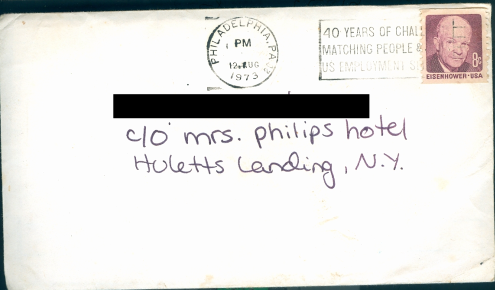 PHILADELPHIA, PA
PM
12 AUG
1973
40 YEARS OF
MATCHING PEOPLE &
US EMPLOYMENT
8c
EISENHOWER·USA
c/o mrs. philips hotel
Huletts Landing, N.Y.